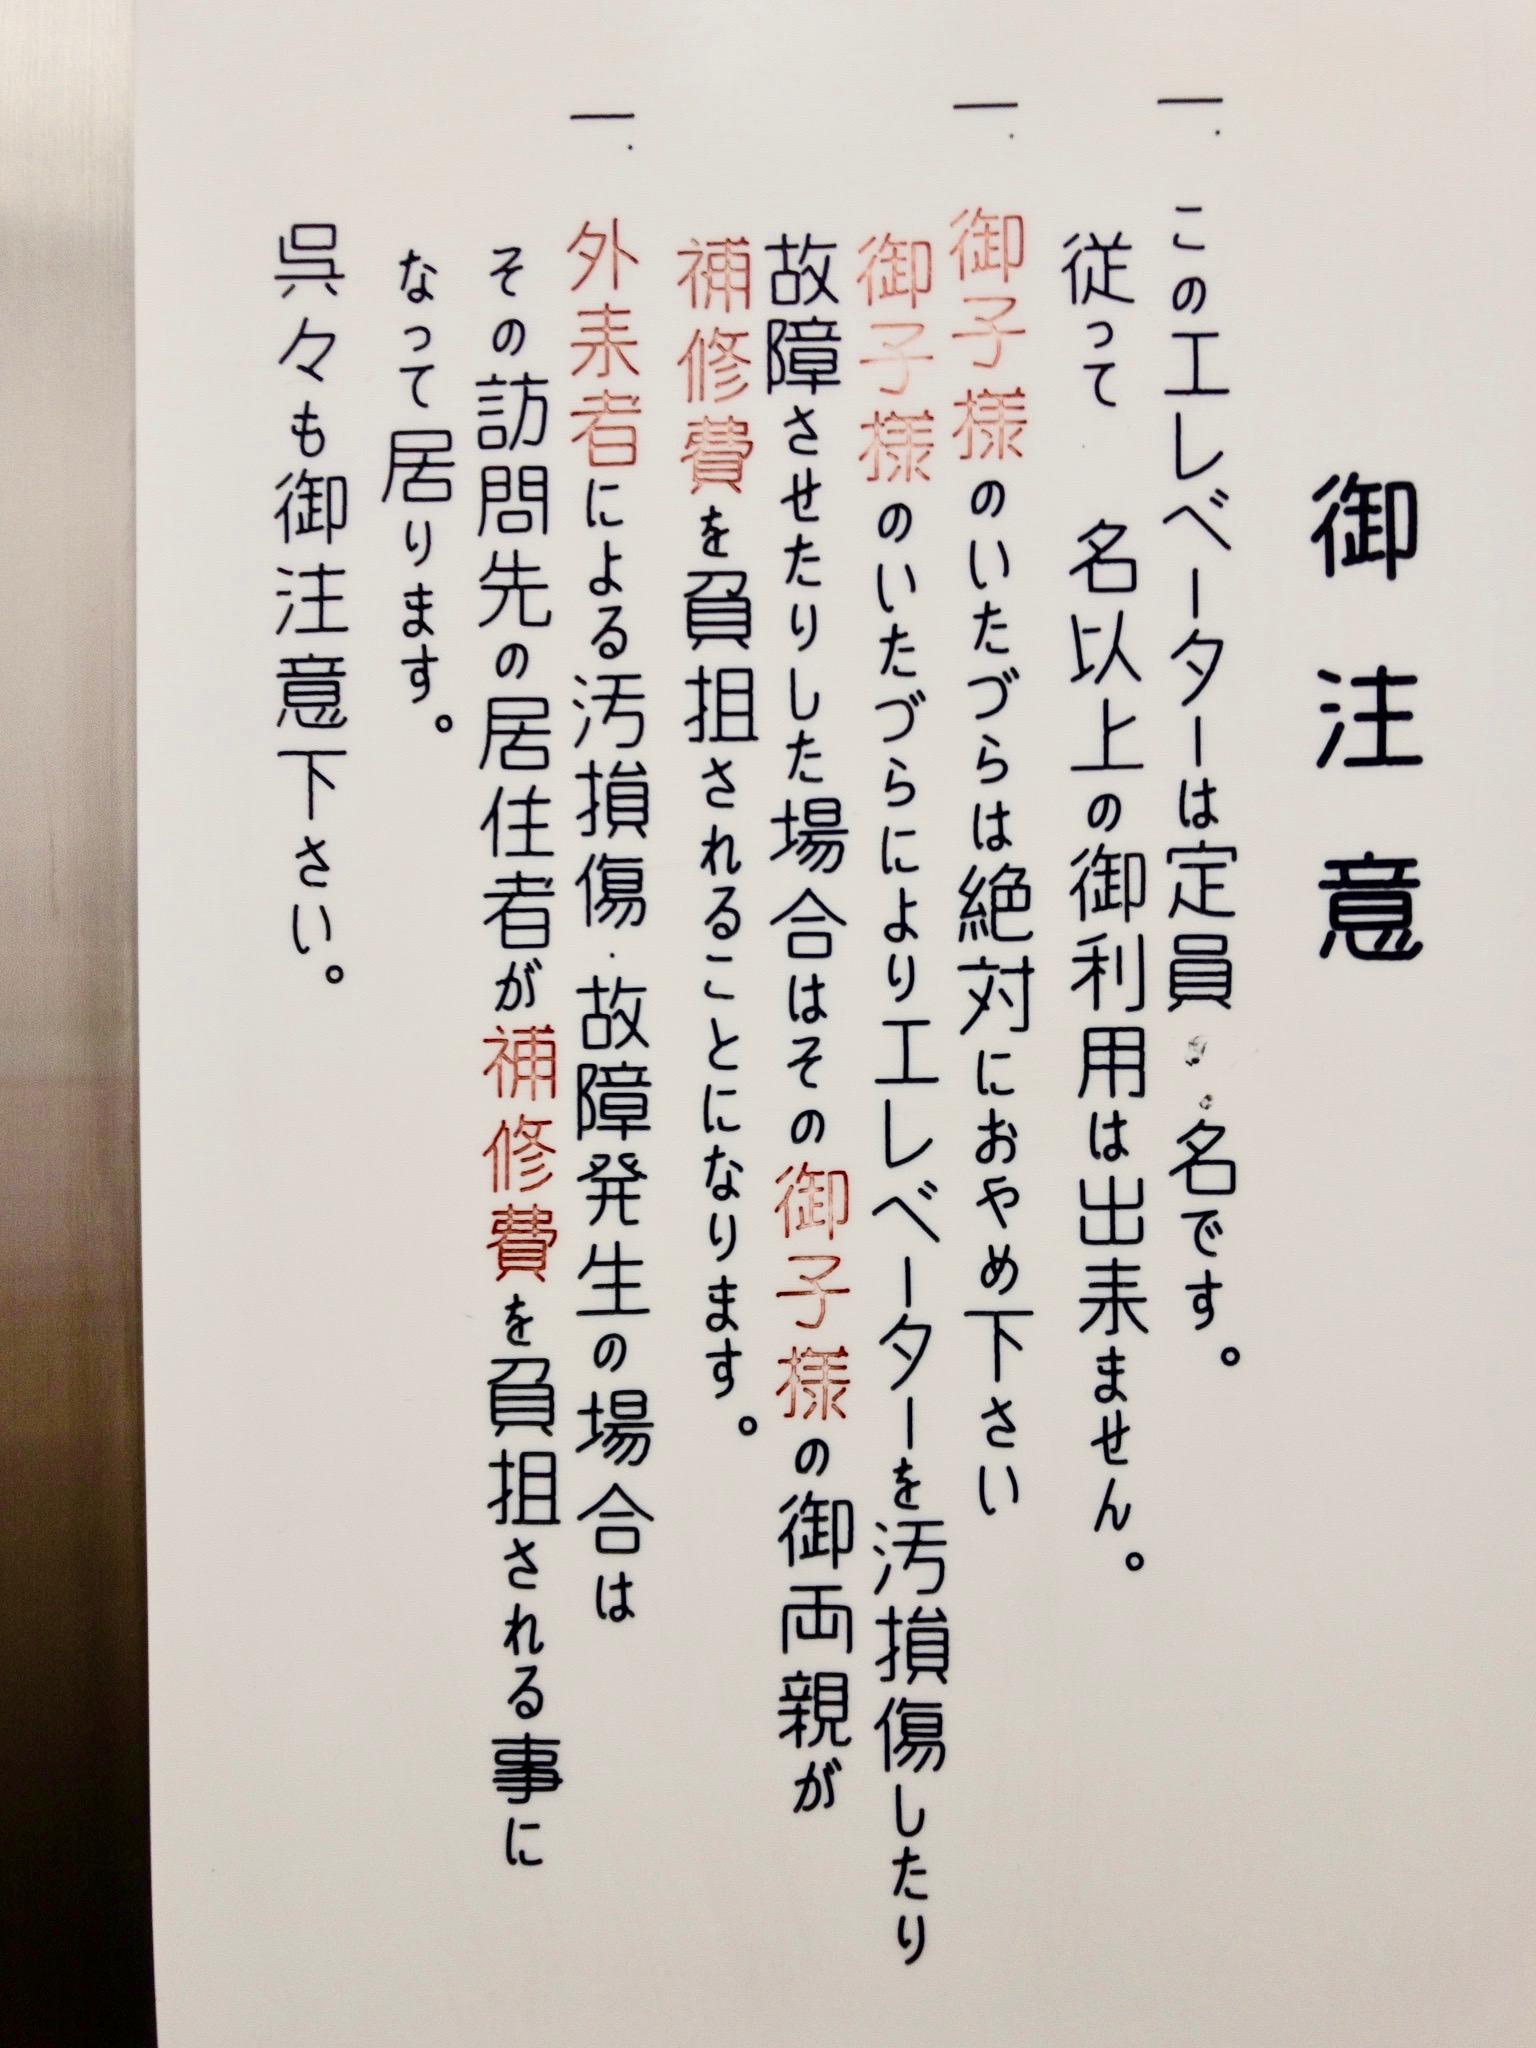 御注意
一. このエレベーターは定員 名です。
従って 名以上の御利用は出来ません。
一. 御子様のいたづらは絶対におやめ下さい
御子様のいたづらによりエレベーターを汚損傷したり
故障させたりした場合はその御子様の御両親が
補修費を負担されることになります。
一. 外来者による汚損傷・故障発生の場合は
その訪問先の居住者が補修費を負担される事に
なって居ります。
呉々も御注意下さい。